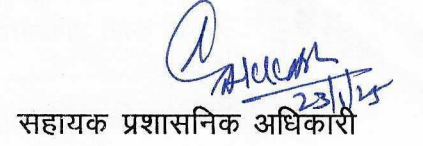 23/1/25
सहायक प्रशासनिक अधिकारी